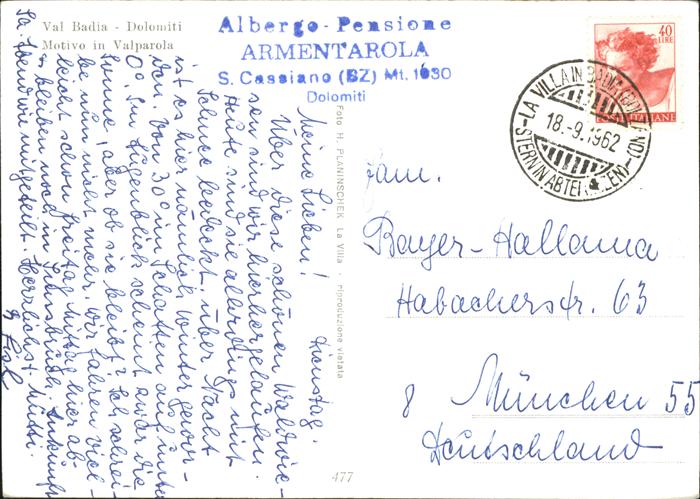 Val Badia - Dolomiti
Motivo in Valparola
Albergo-Pensione
ARMENTAROLA
S. Cassiano (BZ) Mt. 1630
Dolomiti
40
LIRE
POSTE ITALIANE
LA VILLA IN BADIA (BOLZANO)
18.-9.1962
STERN IN ABTEI
Foto H. PLANINSCHEK La Villa - riproduzione vietata
477
Dienstag.
Meine Lieben!
Über diese schönen Waldwie-
sen sind wir hierhergelaufen.
Heute sind sie allerdings mit
Schnee bedeckt. Über Nacht
ist es hier nämlich Winter gewor-
den. Von 30° im Schatten auf unter
0°. Im Augenblick scheint zwar die
Sonne, aber ob sie bleibt? Ich schrei-
be nun nicht mehr. Wir fahren viel-
leicht schon Freitag Mittag hier ab
+ bleiben noch in Innsbruck, Ankunft
Sa. Abend wie mitgeteilt. Herzlichst Mutti.
Fam.
Bayer-Hallama
Habacherstr. 63
8 München 55
Deutschland